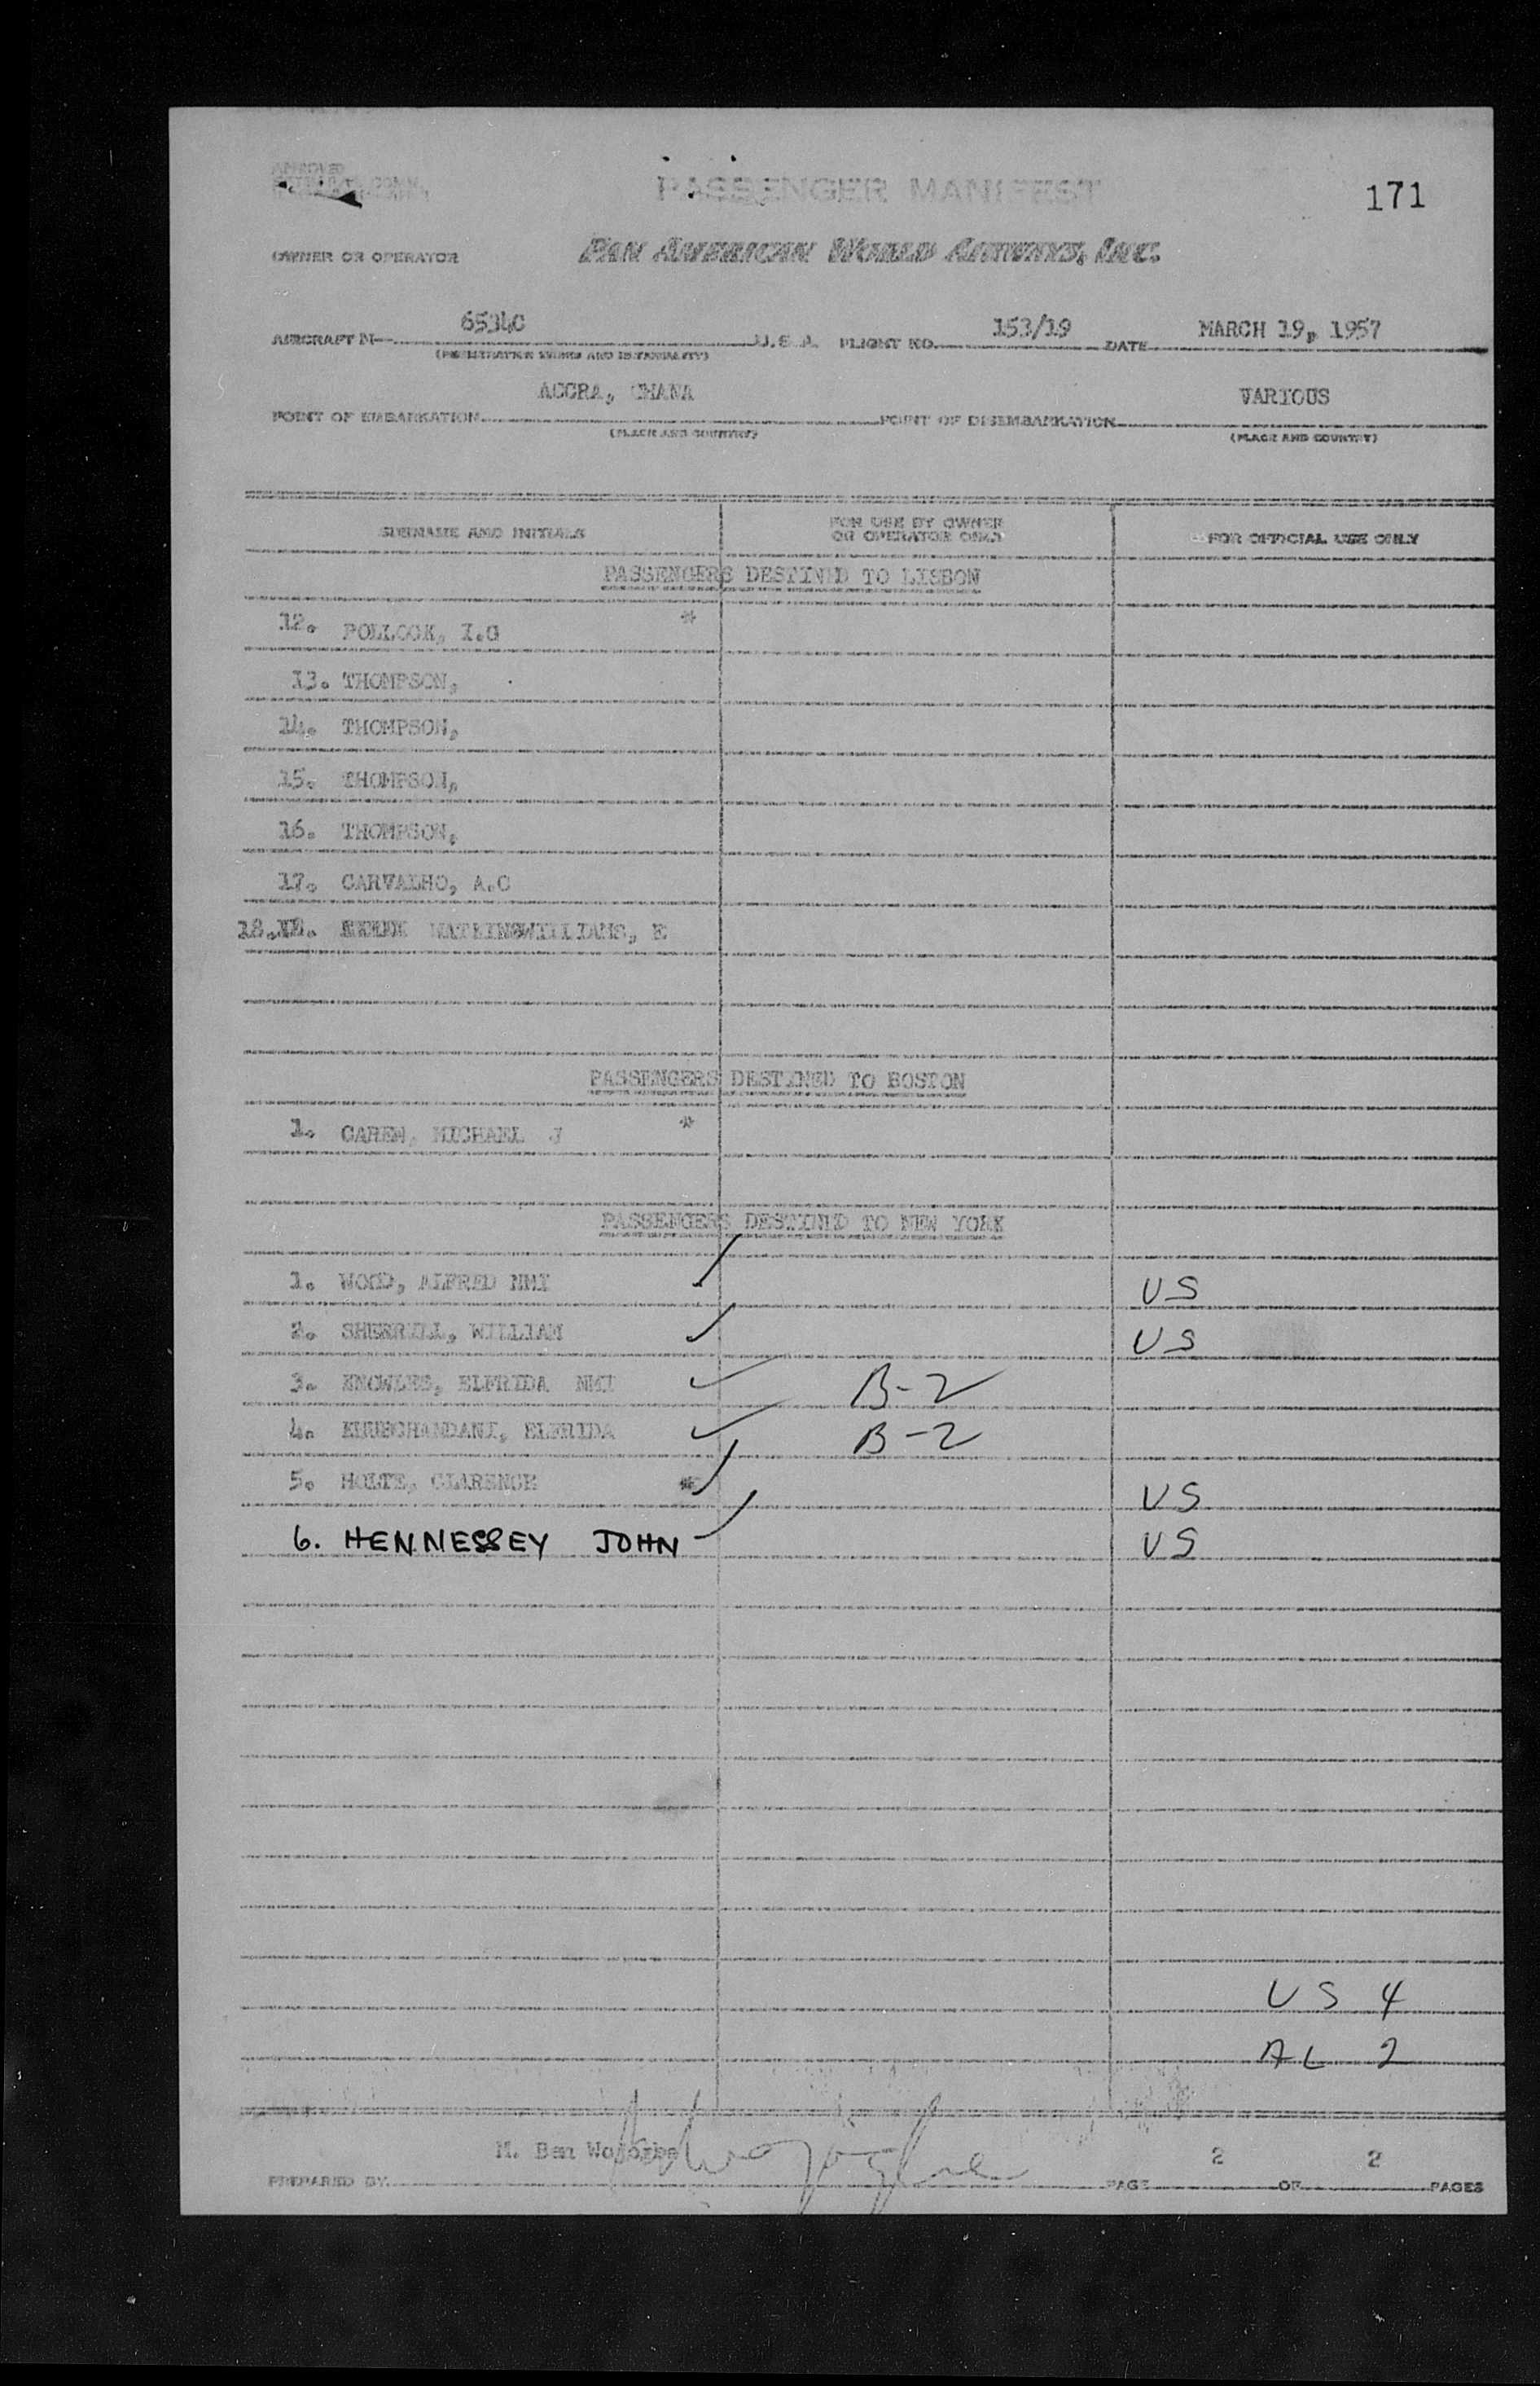 APPROVED
PASSENGER MANIFEST
171
OWNER OR OPERATOR PAN AMERICAN WORLD AIRWAYS, INC.
AIRCRAFT N- 6534C U.S.A. FLIGHT NO. 153/19 DATE MARCH 19, 1957
(REGISTRATION MARKS AND NATIONALITY)
POINT OF EMBARKATION ACCRA, GHANA POINT OF DISEMBARKATION VARIOUS
(PLACE AND COUNTRY) (PLACE AND COUNTRY)
SURNAME AND INITIALS FOR USE BY OWNER OR OPERATOR ONLY FOR OFFICIAL USE ONLY
PASSENGERS DESTINED TO LISBON
12. POLLOCK, I.G *
13. THOMPSON,
14. THOMPSON,
15. THOMPSON,
16. THOMPSON,
17. CARVALHO, A.C
18. WATKINSWILLIAMS, E
PASSENGERS DESTINED TO BOSTON
1. CAREW, MICHAEL J *
PASSENGERS DESTINED TO NEW YORK
1. WOOD, ALFRED NMI US
2. SHERRILL, WILLIAM US
3. KNOWLES, ELFRIDA NMI B-2
4. KHUBCHANDANI, ELFRIDA B-2
5. HOLTE, CLARENCE * US
6. HENNESSEY JOHN US
US 4
AL 2
PREPARED BY M. Ben PAGE 2 OF 2 PAGES